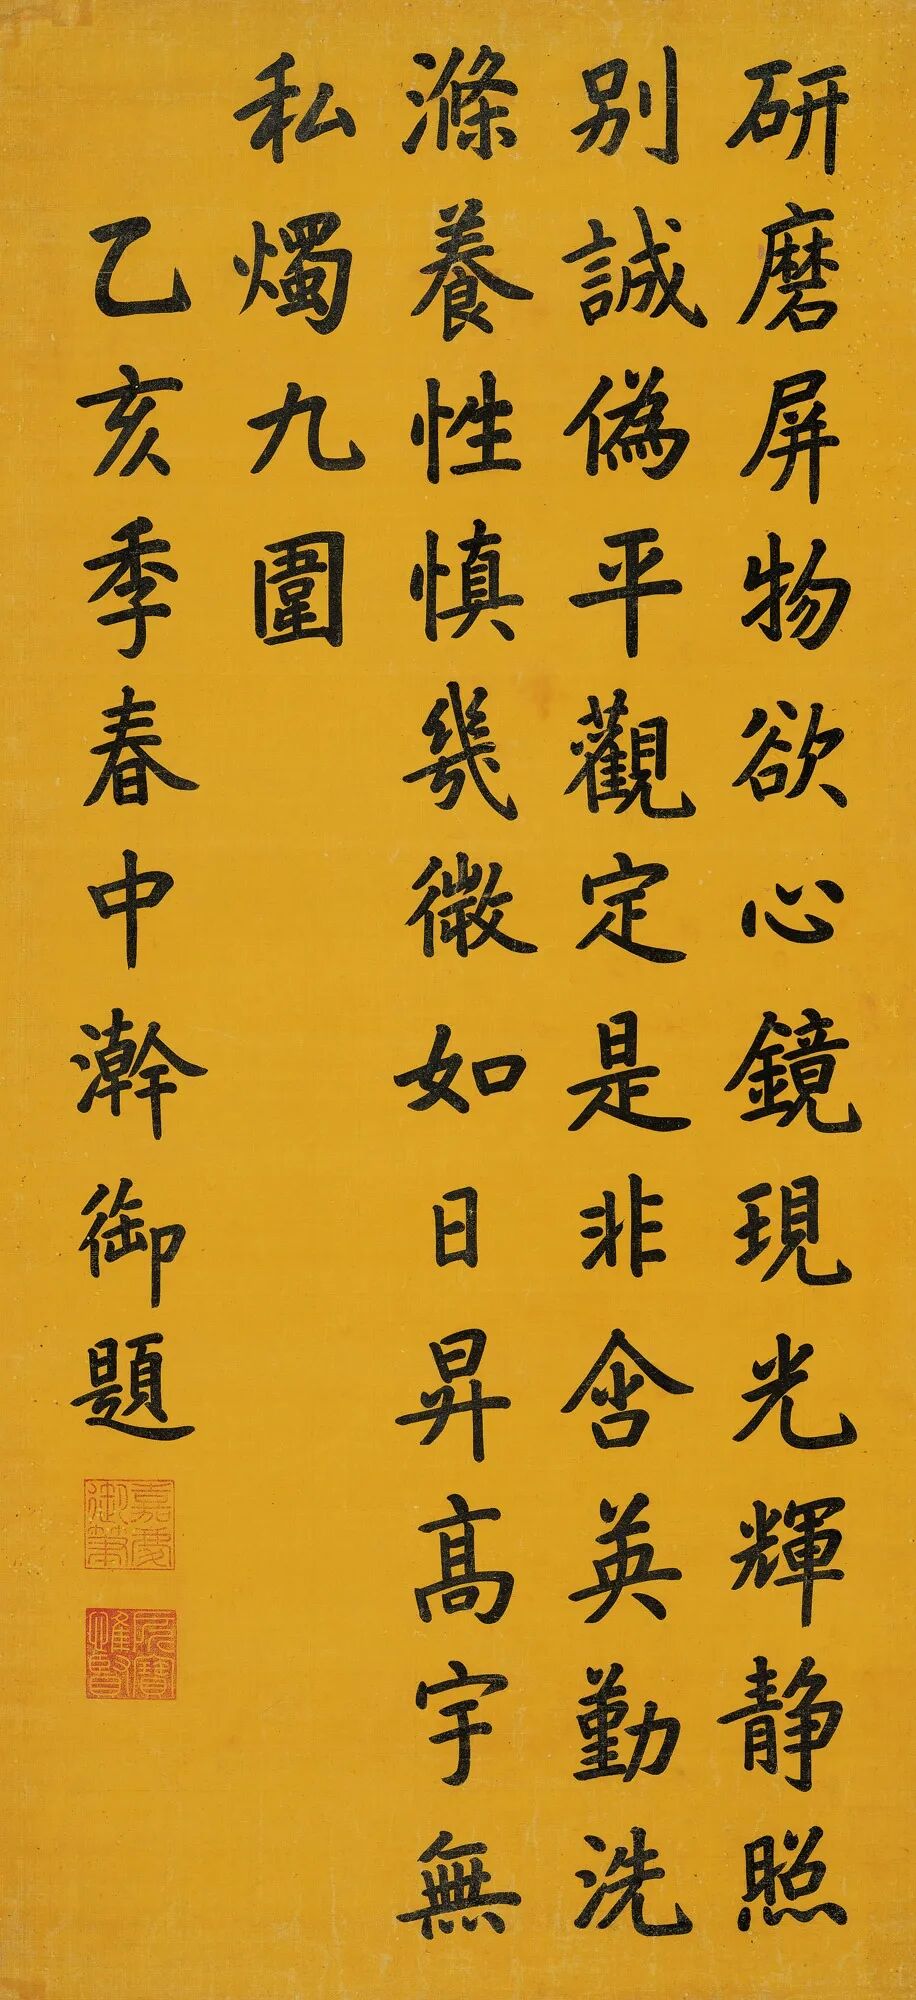 研磨屏物欲心鏡現光輝静照
别誠偽平觀定是非含英勤洗
滌養性慎幾微如日昇高宇無
私燭九圍
乙亥季春中澣御題
嘉慶御筆
所寶惟賢